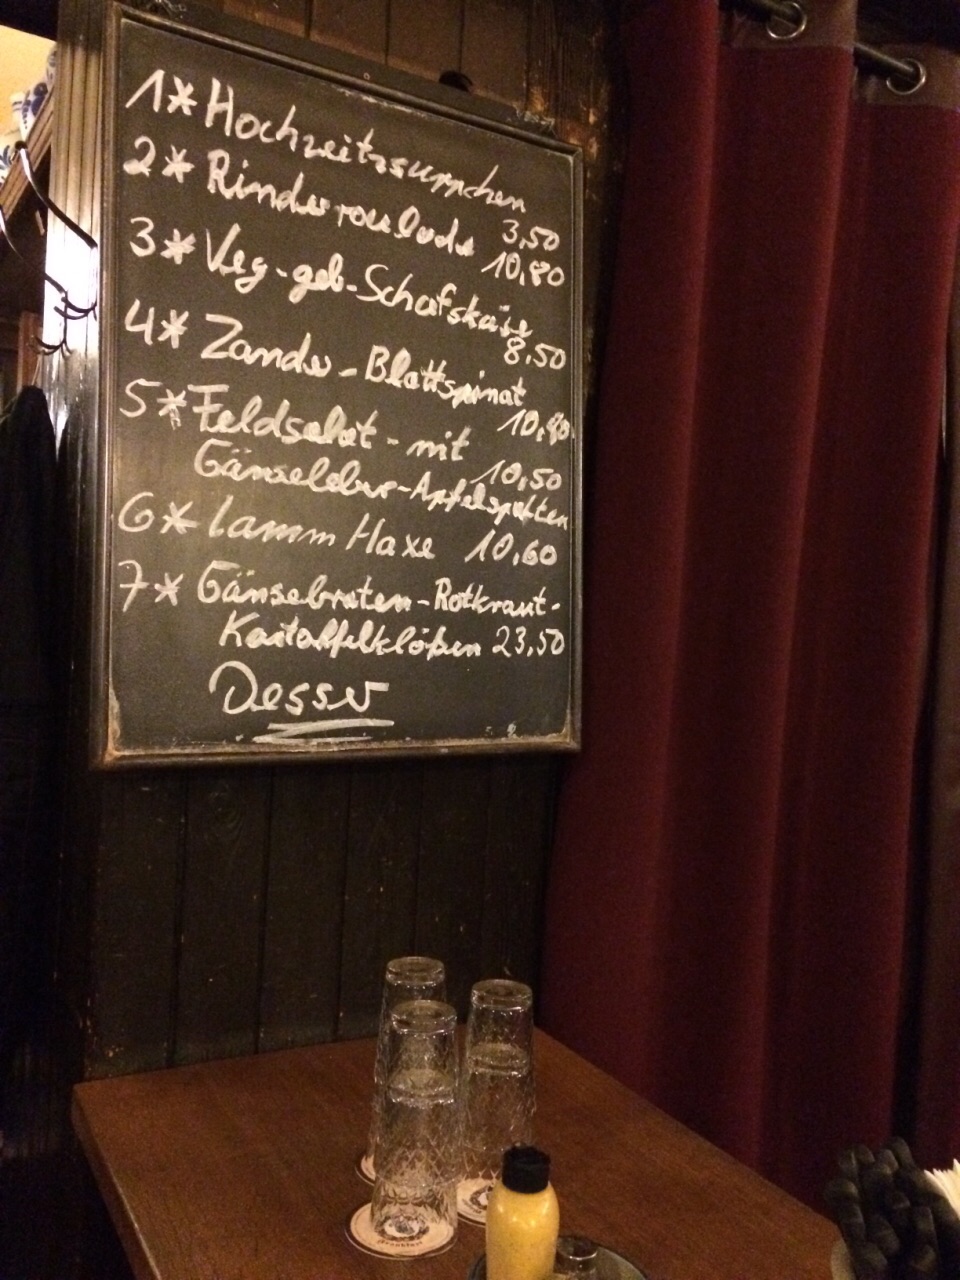 1* Hochzeitssuppchen
3,50
2* Rinderroulade 10,80
3* Veg-geb-Schafskäse
8,50
4* Zander-Blattspinat
10,80
5* Feldsalat-mit 10,50
Gänseleber-Apfelspalten
6* Lamm Haxe 10,60
7* Gänsebraten-Rotkraut-
Kartoffelklößen 23,50
Desser